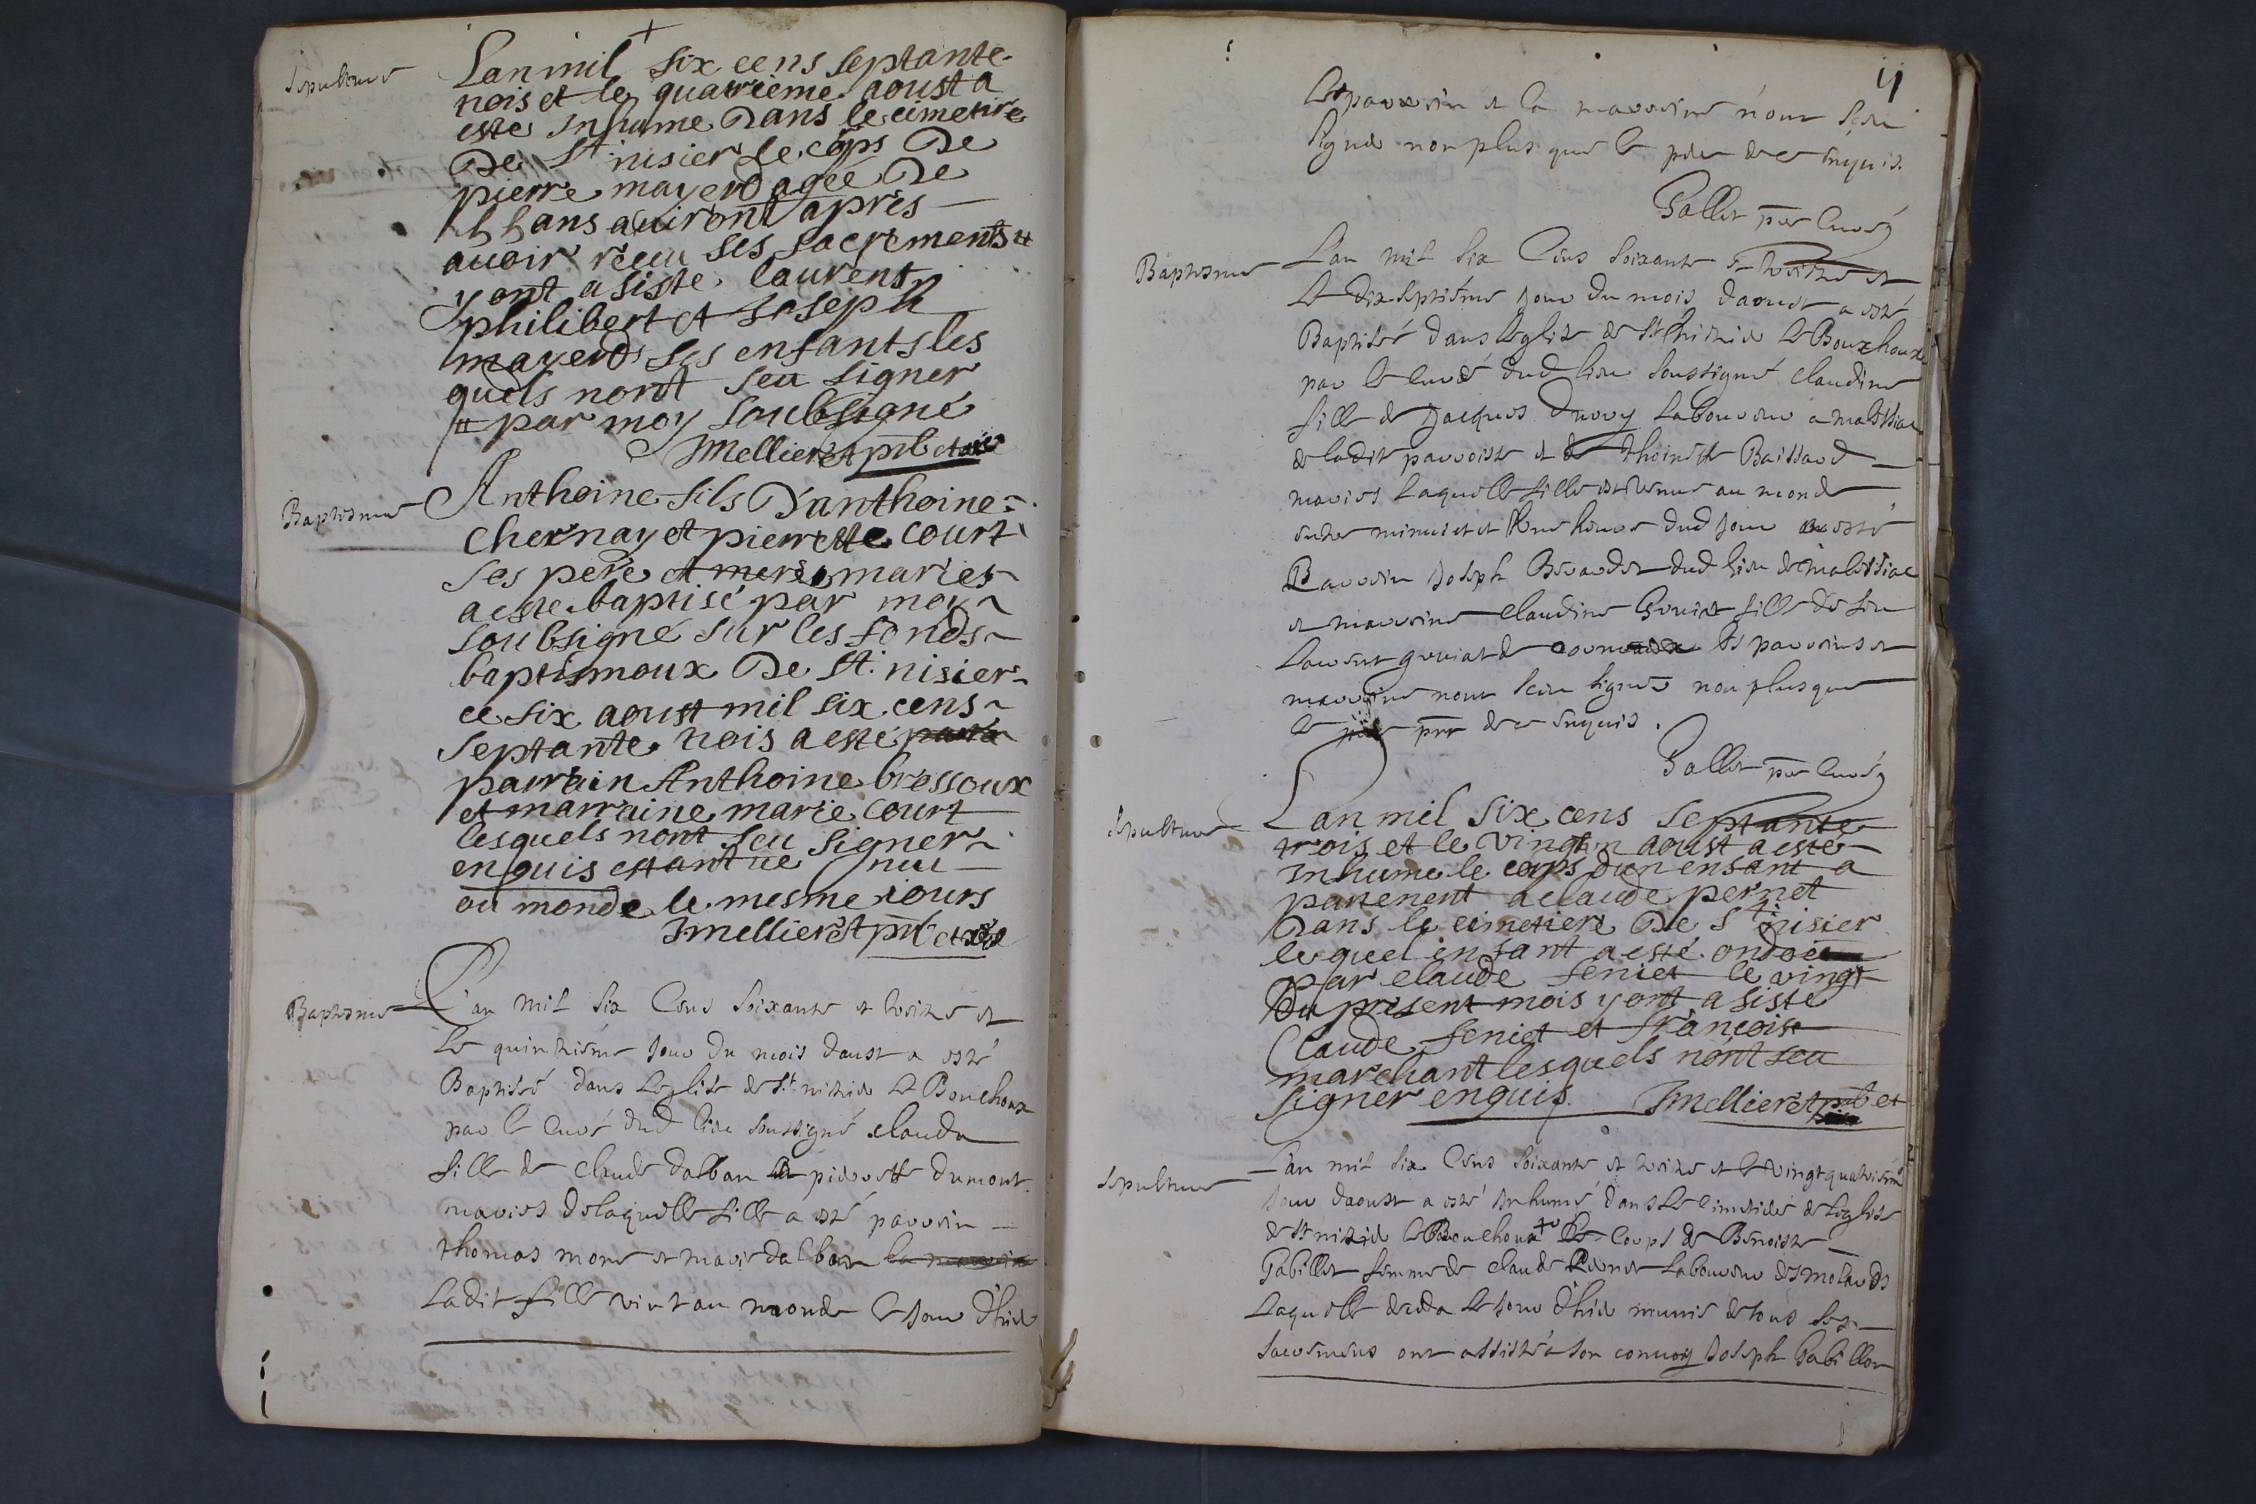 Sepulture
Lanmil six cens septante
trois et le quatrieme aoust a
este Inhume Dans le cimetire
De St nisier le cops De
pierre mayerd agée De
ans auiront apres
auoir receu ses sacrements
y ont asiste laurent
philibert et Joseph
mayerd ses enfants les
quels nont seu signer
par moy soubsigné
Jmellieret pbr et
Baptesme
Anthoine fils D'anthoine
Chernay et pierrette court
ses pere et mere maries
aeste baptisé par moy
soubsigné sur les fonds
baptismoux De St. nisier
ce six aoust mil six cens
septante trois aesté
parrain Anthoine bressoux
et marraine marie court
lesquels nont seu signer
enquis estant ue nuu
ou monde le mesme iours
Jmellieret pbr et
Baptesme
L'an mil six Cens soixante et treize et
Le quinzième jour du mois daust a esté
Baptisée dans Léglise de St nizier Le Bouchoux
par le curé dud lieu soussigné clauda
fille de claude dalban et pierrette dumont
maries delaquelle fille a esté parrain
thomas more et marie dalban
Ladit fille vint au monde le jour d'hier
11
Le parrain et la marraine n'ont seu
signer non plus que le pere de ce enquis.
Gallet pbr curé
Baptesme
L'an mil six Cens soixante et treize et
Le dixseptième jour du mois daoust a esté
Baptisée dans Léglise de St Nizier Le Bouchoux
par le curé dud lieu soussigné claudine
fille de Jacques Druoy Laboureur a malissiac
de ladit parroisse et de thoinette Baissard
maries Laquelle fille est venue au monde
entre minuict et une heure dud jour a esté
Parrain Joseph Berardet dud lieu de malissiac
et marraine claudine Gouiat fille de feu
Laurent gouiat de Les parrains et
marraine nont sceu signer non plusque
le pere de ce enquis.
Gallet pbr curé
Sepulture
Lan mil six cens septante
trois et le vingtun aoust aeste
Inhume le corps dun ensant a
partenent aclaude pernet
Dans le cimetiere De St nisier
lequel ensant aesté ondoié
par claude feniet le vingt
Du present mois y ont asisté
Claude feniet et francois
marchant lesquels nont seu
signer enquis. Jmellieret pbr et
Sepulture
L'an mil six Cens soixante et treize et le vingt quatrième
jour daoust a esté Inhumé dans Le cimetière de Léglise
de St nizier le Bouchoux Le Corps de Benoiste
Gabillet femme de claude Pernet Laboureur des molards
Laquelle deceda Le jour d'hier munie de tous ses
sacremens ont assisté a son convoy Joseph Gabillet